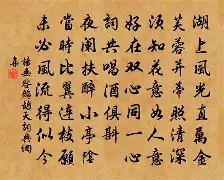 湖上風光直萬金
芙蓉并蒂照清深
須知花意如人意
好在双心同一心
詞共唱酒俱斟
夜闌扶醉小亭陰
當時比翼連枝願
未必風流得似今
楊無咎鷓鴣天詞典網
集